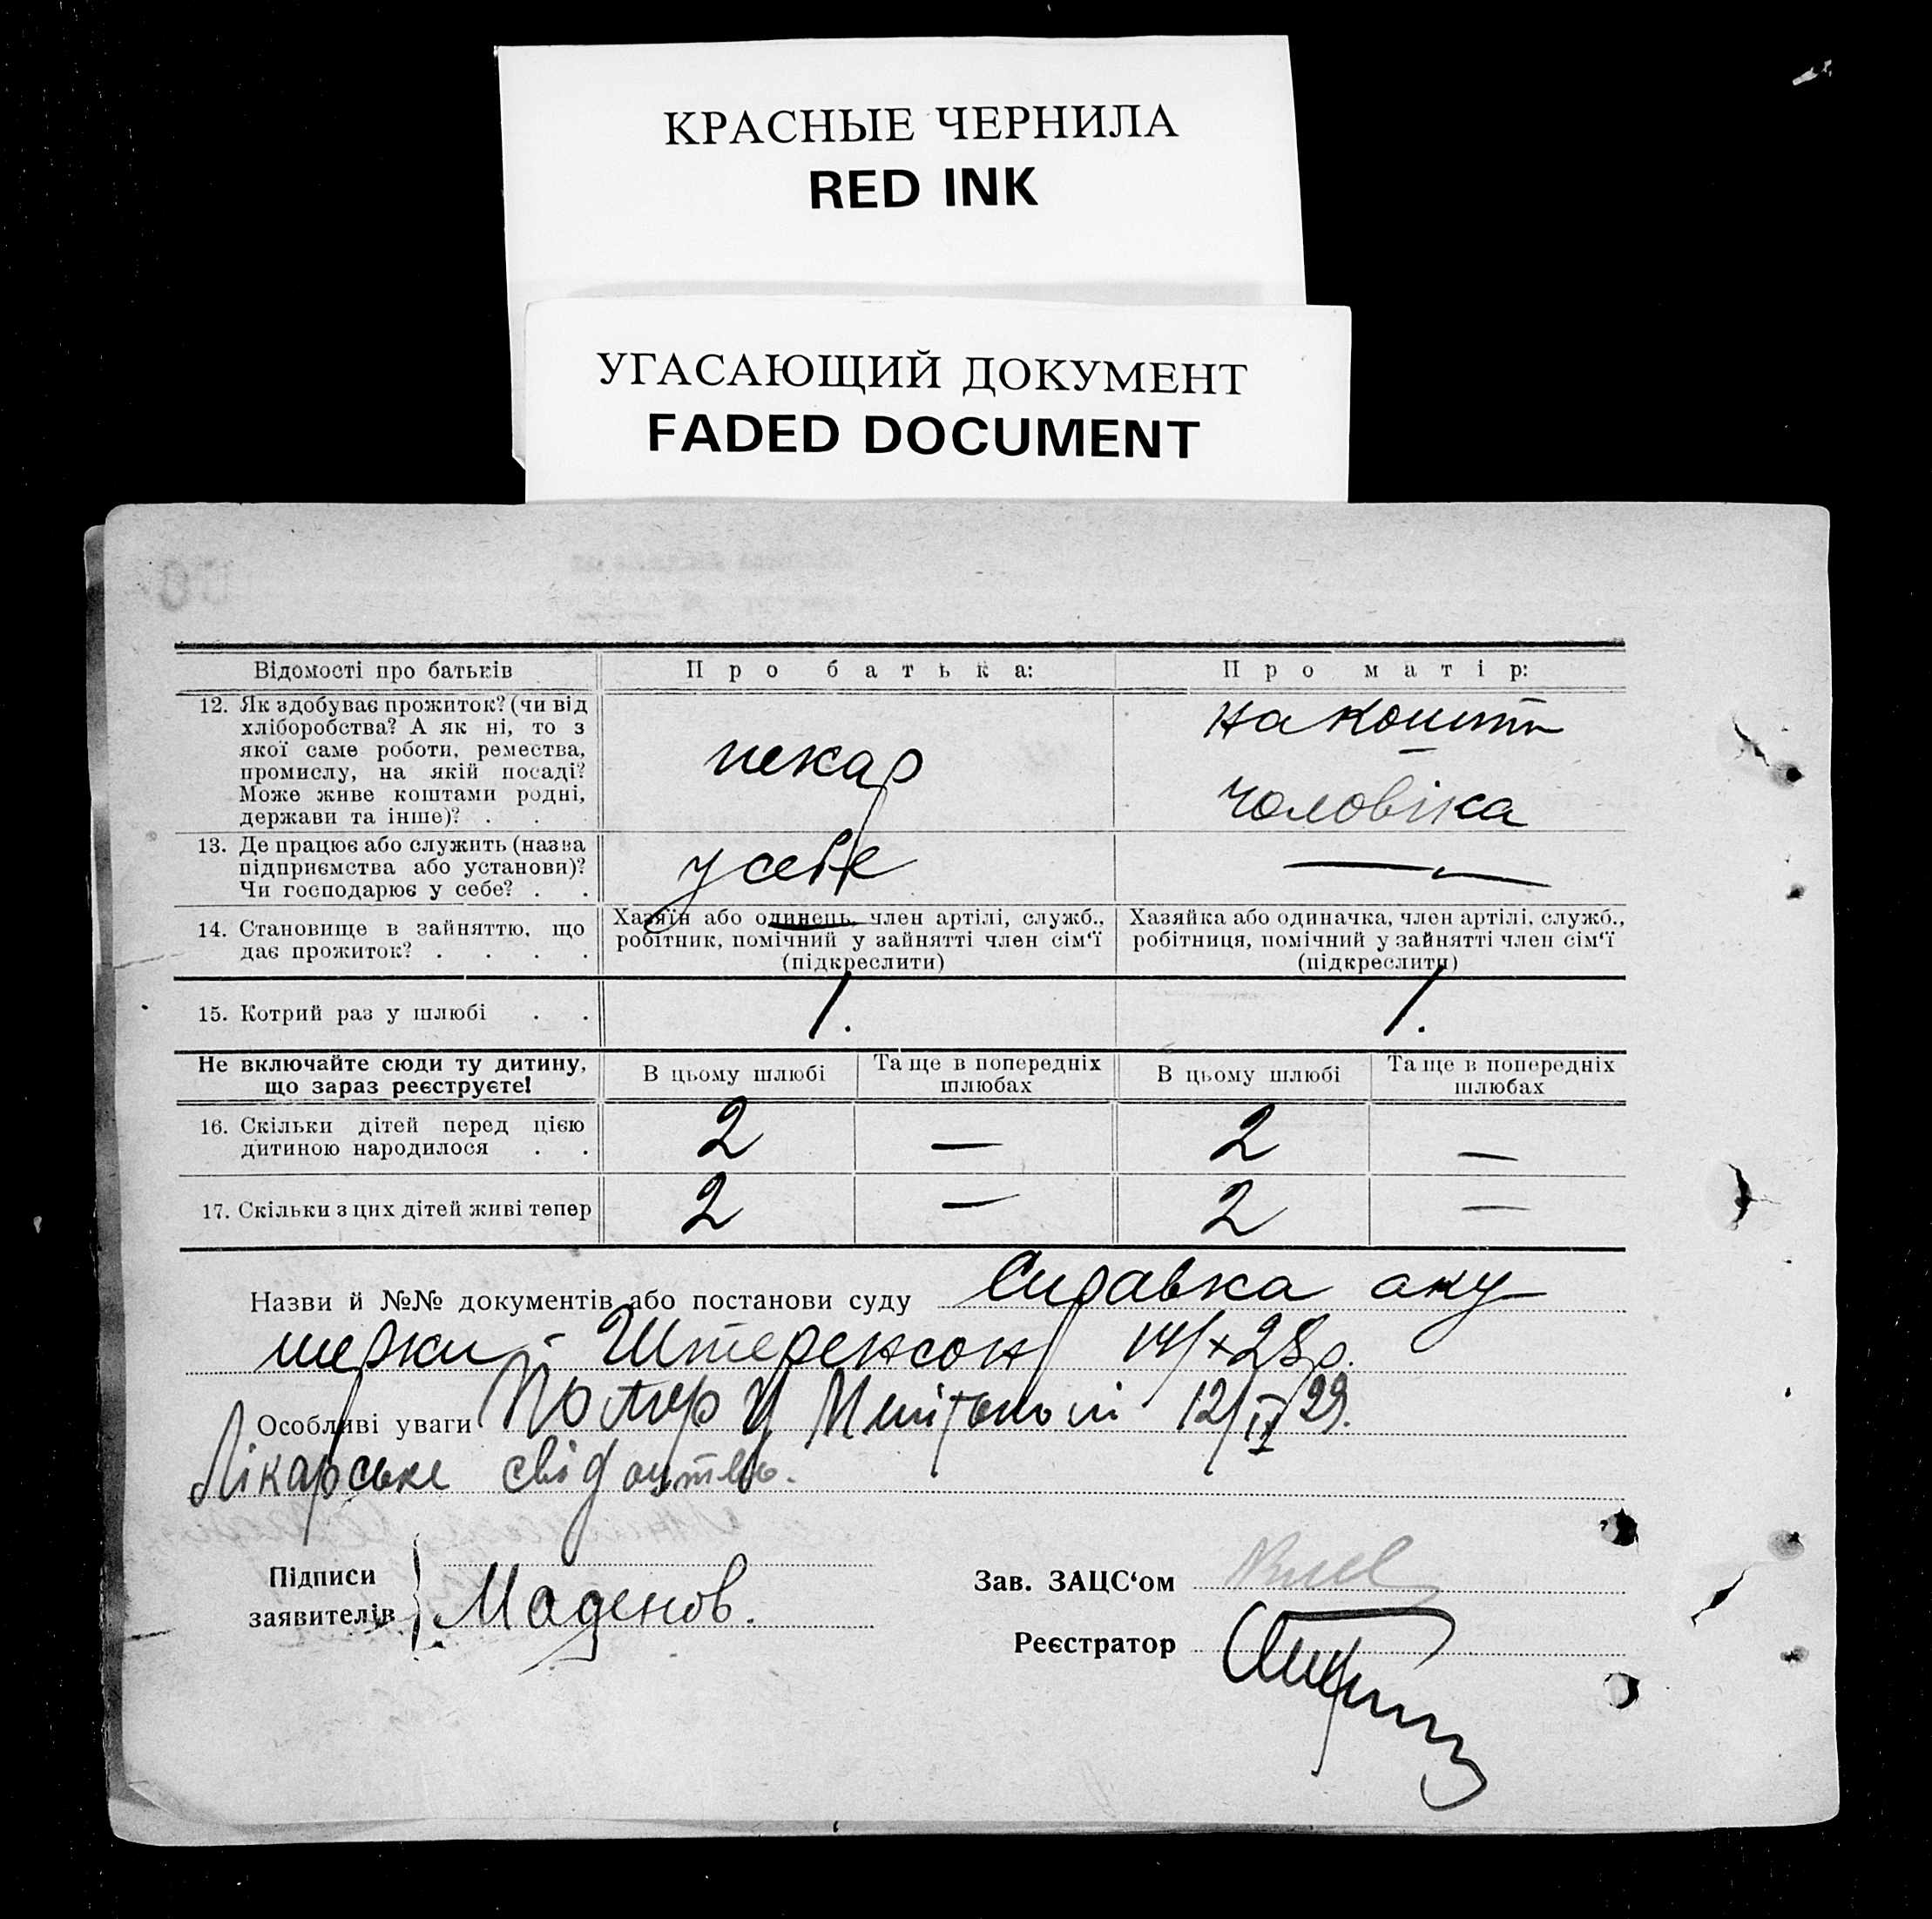 КРАСНЫЕ ЧЕРНИЛА
RED INK
УГАСАЮЩИЙ ДОКУМЕНТ
FADED DOCUMENT
Відомості про батьків
Про батька:
Про матір:
12. Як здобуває прожиток? (чи від
хліборобства? А як ні, то з
якої саме роботи, ремества,
промислу, на якій посаді?
Може живе коштами родні,
держави та інше)? . .
пекар
на кошти
чоловіка
13. Де працює або служить (назва
підприємства або установи)?
Чи господарює у себе? . .
у себе
—
14. Становище в зайняттю, що
дає прожиток? . . . .
Хазяїн або одинець, член артілі, служб.,
робітник, помічний у зайнятті член сім'ї
(підкреслити)
Хазяйка або одиначка, член артілі, служб.,
робітниця, помічний у зайнятті член сім'ї
(підкреслити)
15. Котрий раз у шлюбі . .
1.
1.
Не включайте сюди ту дитину,
що зараз реєструєте!
В цьому шлюбі
Та ще в попередніх
шлюбах
В цьому шлюбі
Та ще в попередніх
шлюбах
16. Скільки дітей перед цією
дитиною народилося . .
2 — 2 —
17. Скільки з цих дітей живі тепер
2 — 2 —
Назви й №№ документів або постанови суду Справка аку
шерки - Штеренсон 14/X 28 р.
Особливі уваги 12/IV 29.
Лікарське свідоцтво.
Підписи
заявителів
Маденов.
Зав. ЗАЦС'ом
Реєстратор